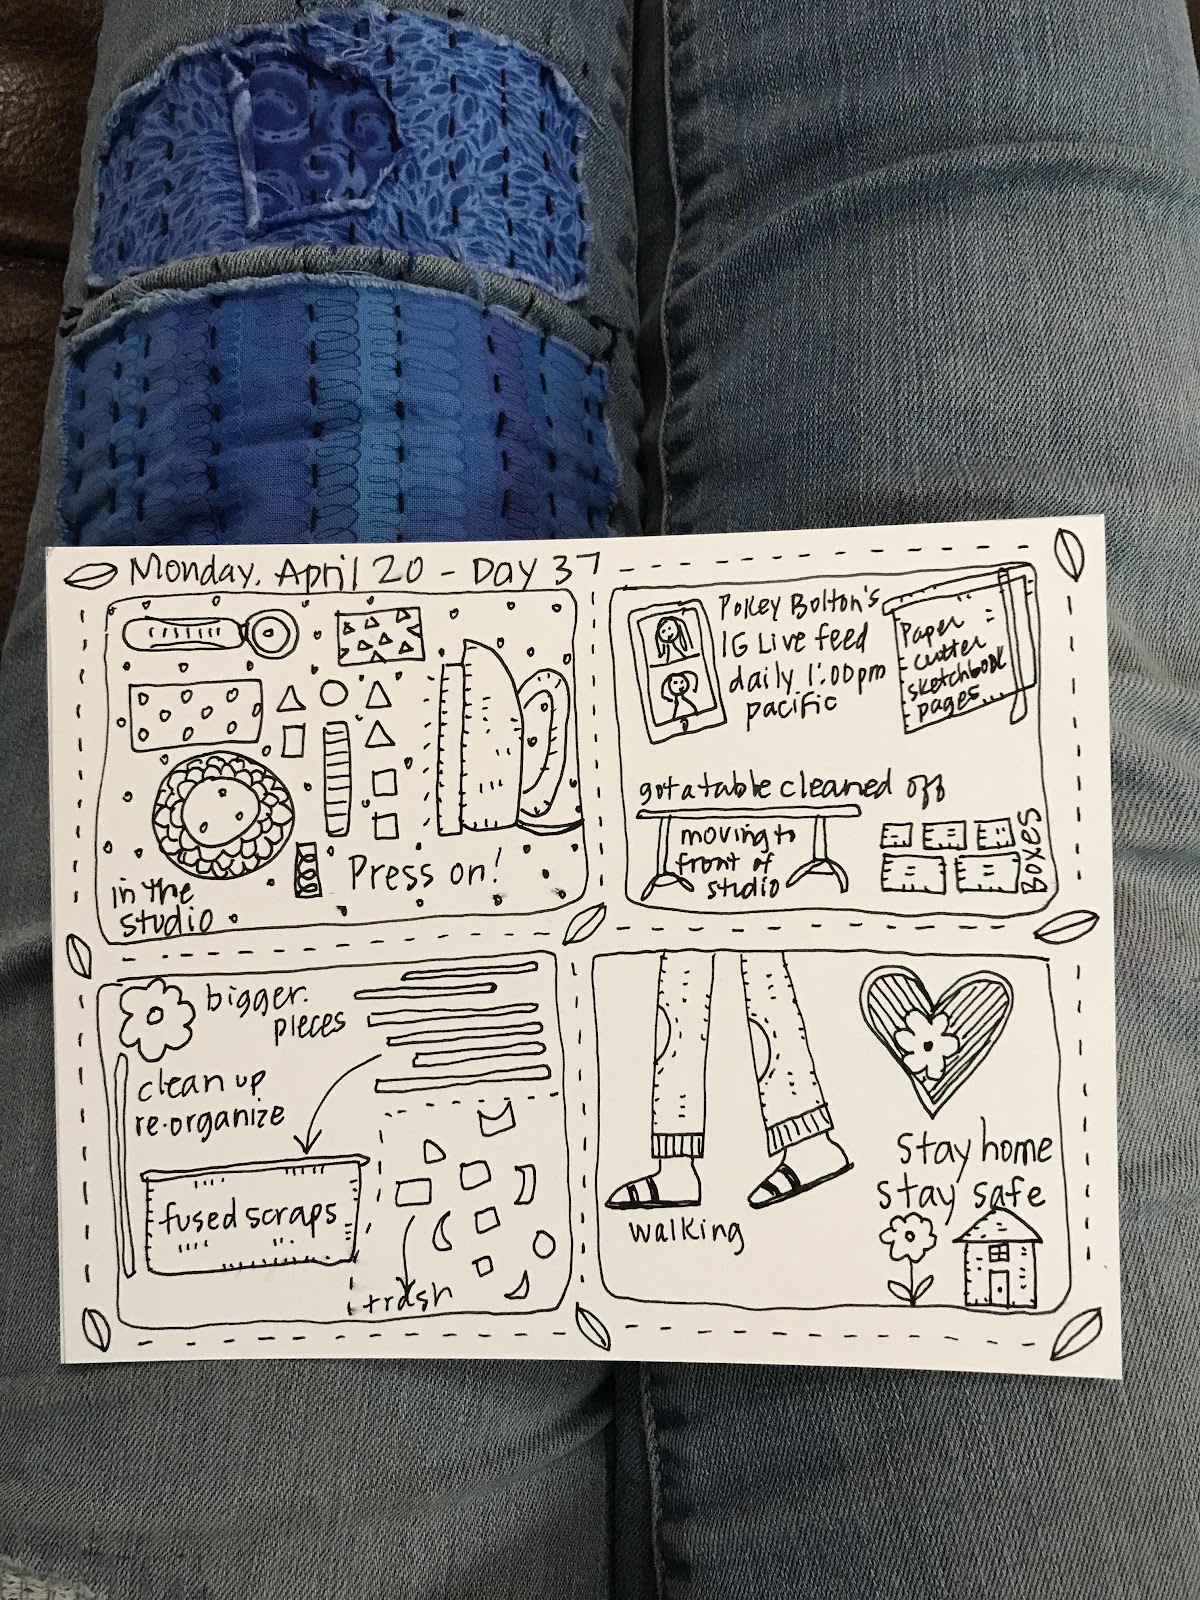 Monday, April 20 - Day 37
in the
studio
Press on!
Pokey Bolton's
IG Live feed
daily 1:00pm
pacific
Paper
cutter
sketchbook
pages
got a table cleaned off
moving to
front of
studio
Boxes
bigger
pieces
clean up
re-organize
fused scraps
trash
walking
stay home
stay safe